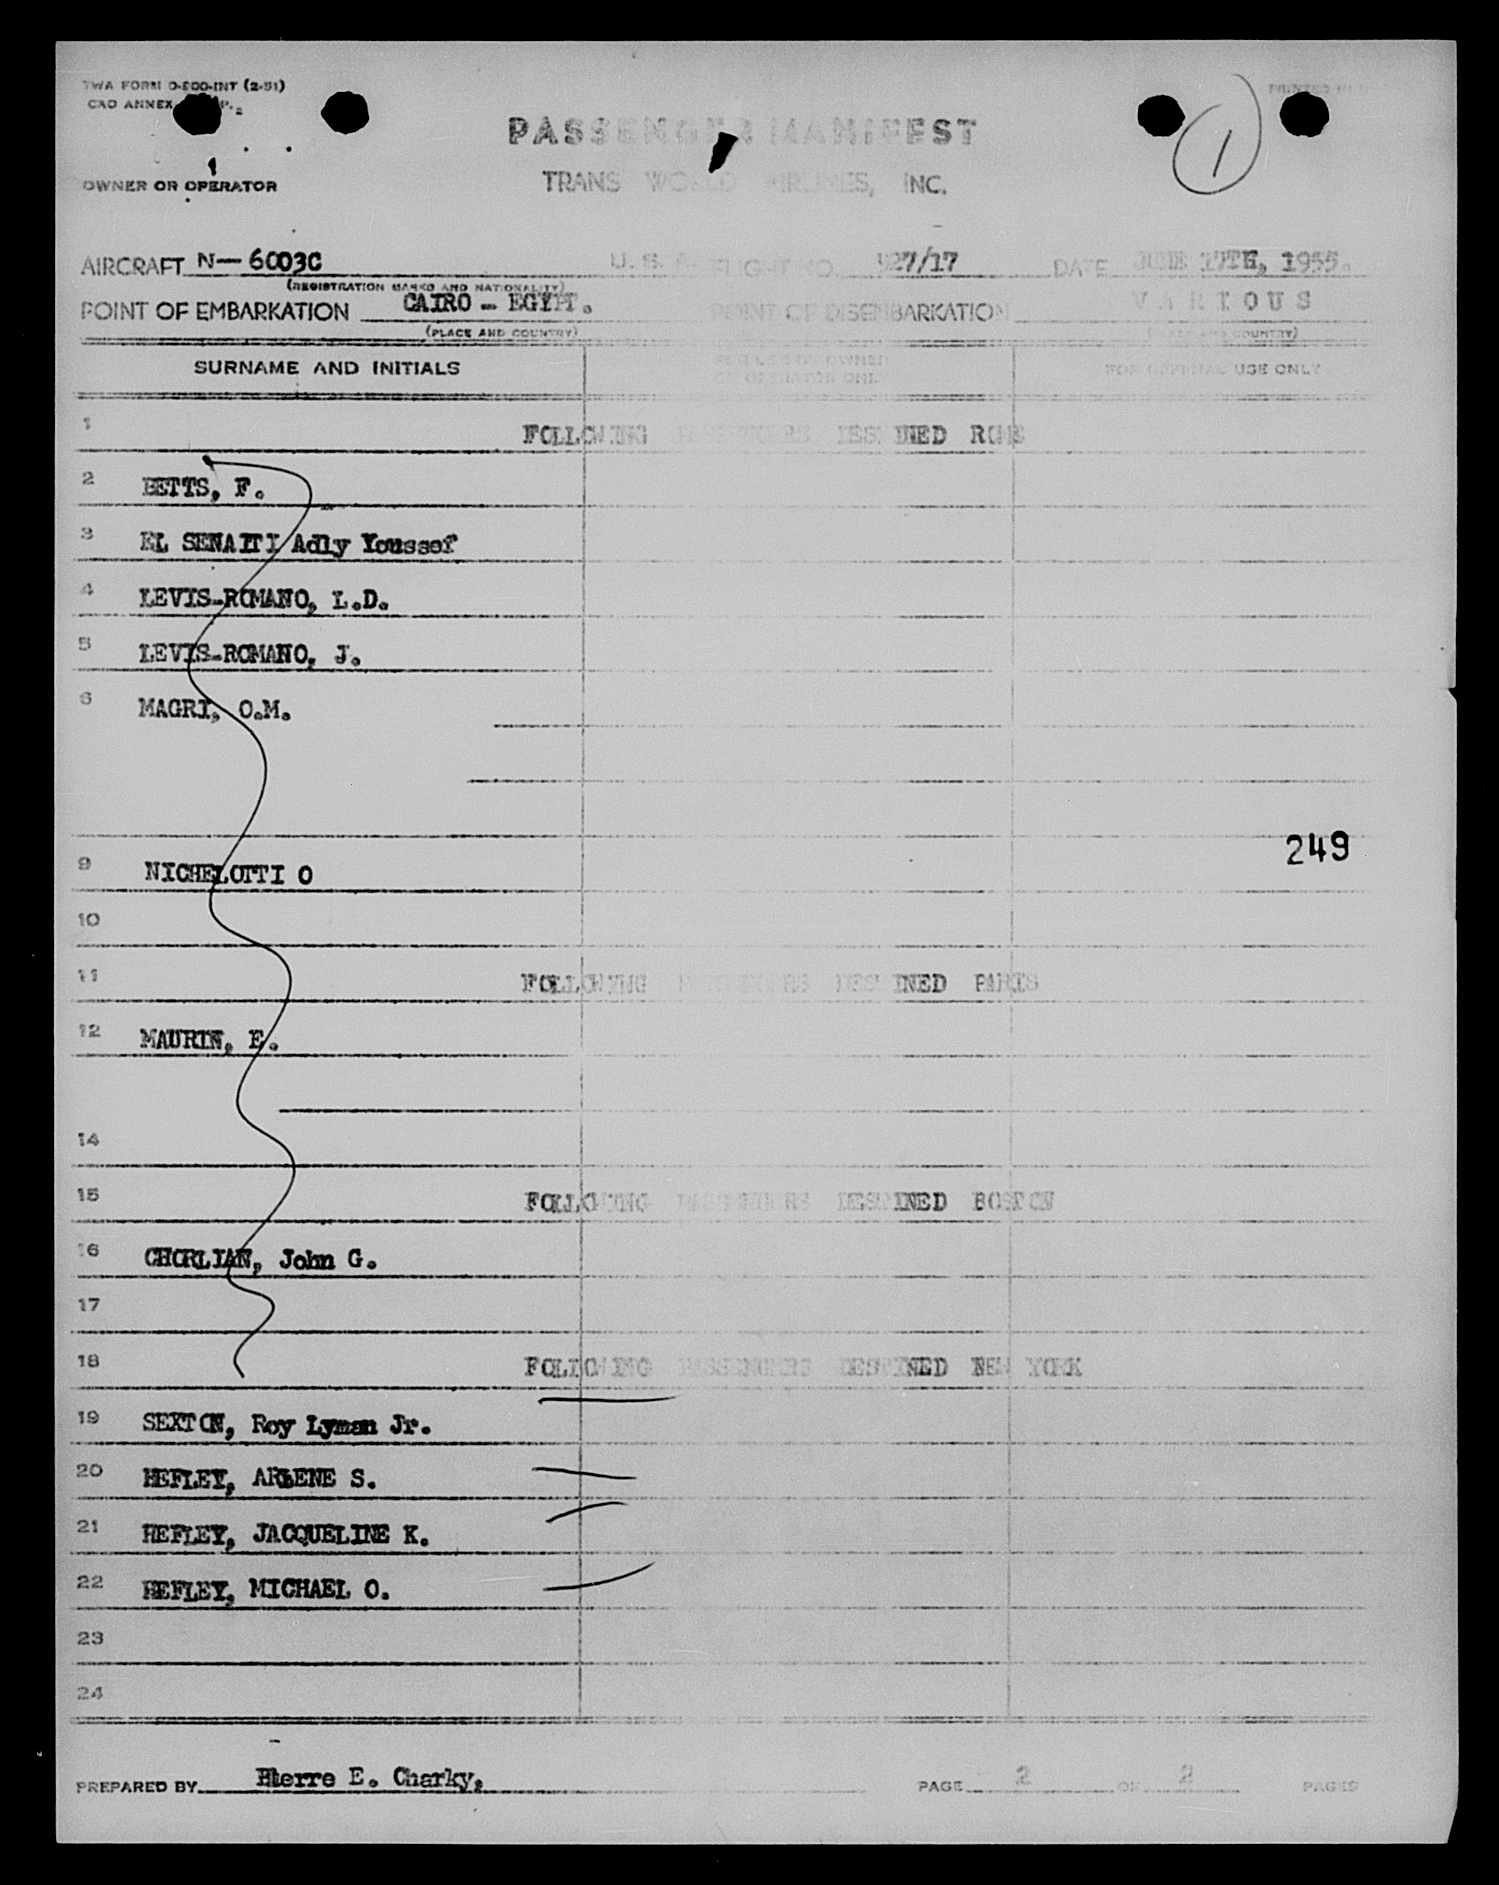 TWA FORM O-800-INT (2-51)
CAO ANNEX
PASSENGER MANIFEST
1
OWNER OR OPERATOR
TRANS WORLD AIRLINES, INC.
AIRCRAFT N-6003C U. S. A. FLIGHT NO. 927/17 DATE JUNE 17TH, 1955.
(REGISTRATION MARKS AND NATIONALITY)
POINT OF EMBARKATION CAIRO - EGYPT. POINT OF DISEMBARKATION VARIOUS
(PLACE AND COUNTRY) (PLACE AND COUNTRY)
SURNAME AND INITIALS FOR USE BY OWNER OR OPERATOR ONLY FOR OFFICIAL USE ONLY
1 FOLLOWING PASSENGERS DESTINED ROME
2 BETTS, F.
3 EL SENAITI Adly Youssef
4 LEVIS-ROMANO, L.D.
5 LEVIS-ROMANO, J.
6 MAGRI, O.M.
249
9 NICHELOTTI O
10
11 FOLLOWING PASSENGERS DESTINED PARIS
12 MAURIN, E.
14
15 FOLLOWING PASSENGERS DESTINED BOSTON
16 CHORLIAN, John G.
17
18 FOLLOWING PASSENGERS DESTINED NEW YORK
19 SEXTON, Roy Lyman Jr.
20 HEFLEY, ARLENE S.
21 HEFLEY, JACQUELINE K.
22 HEFLEY, MICHAEL O.
23
24
PREPARED BY Pierre E. Charky. PAGE 2 OF 2 PAGES